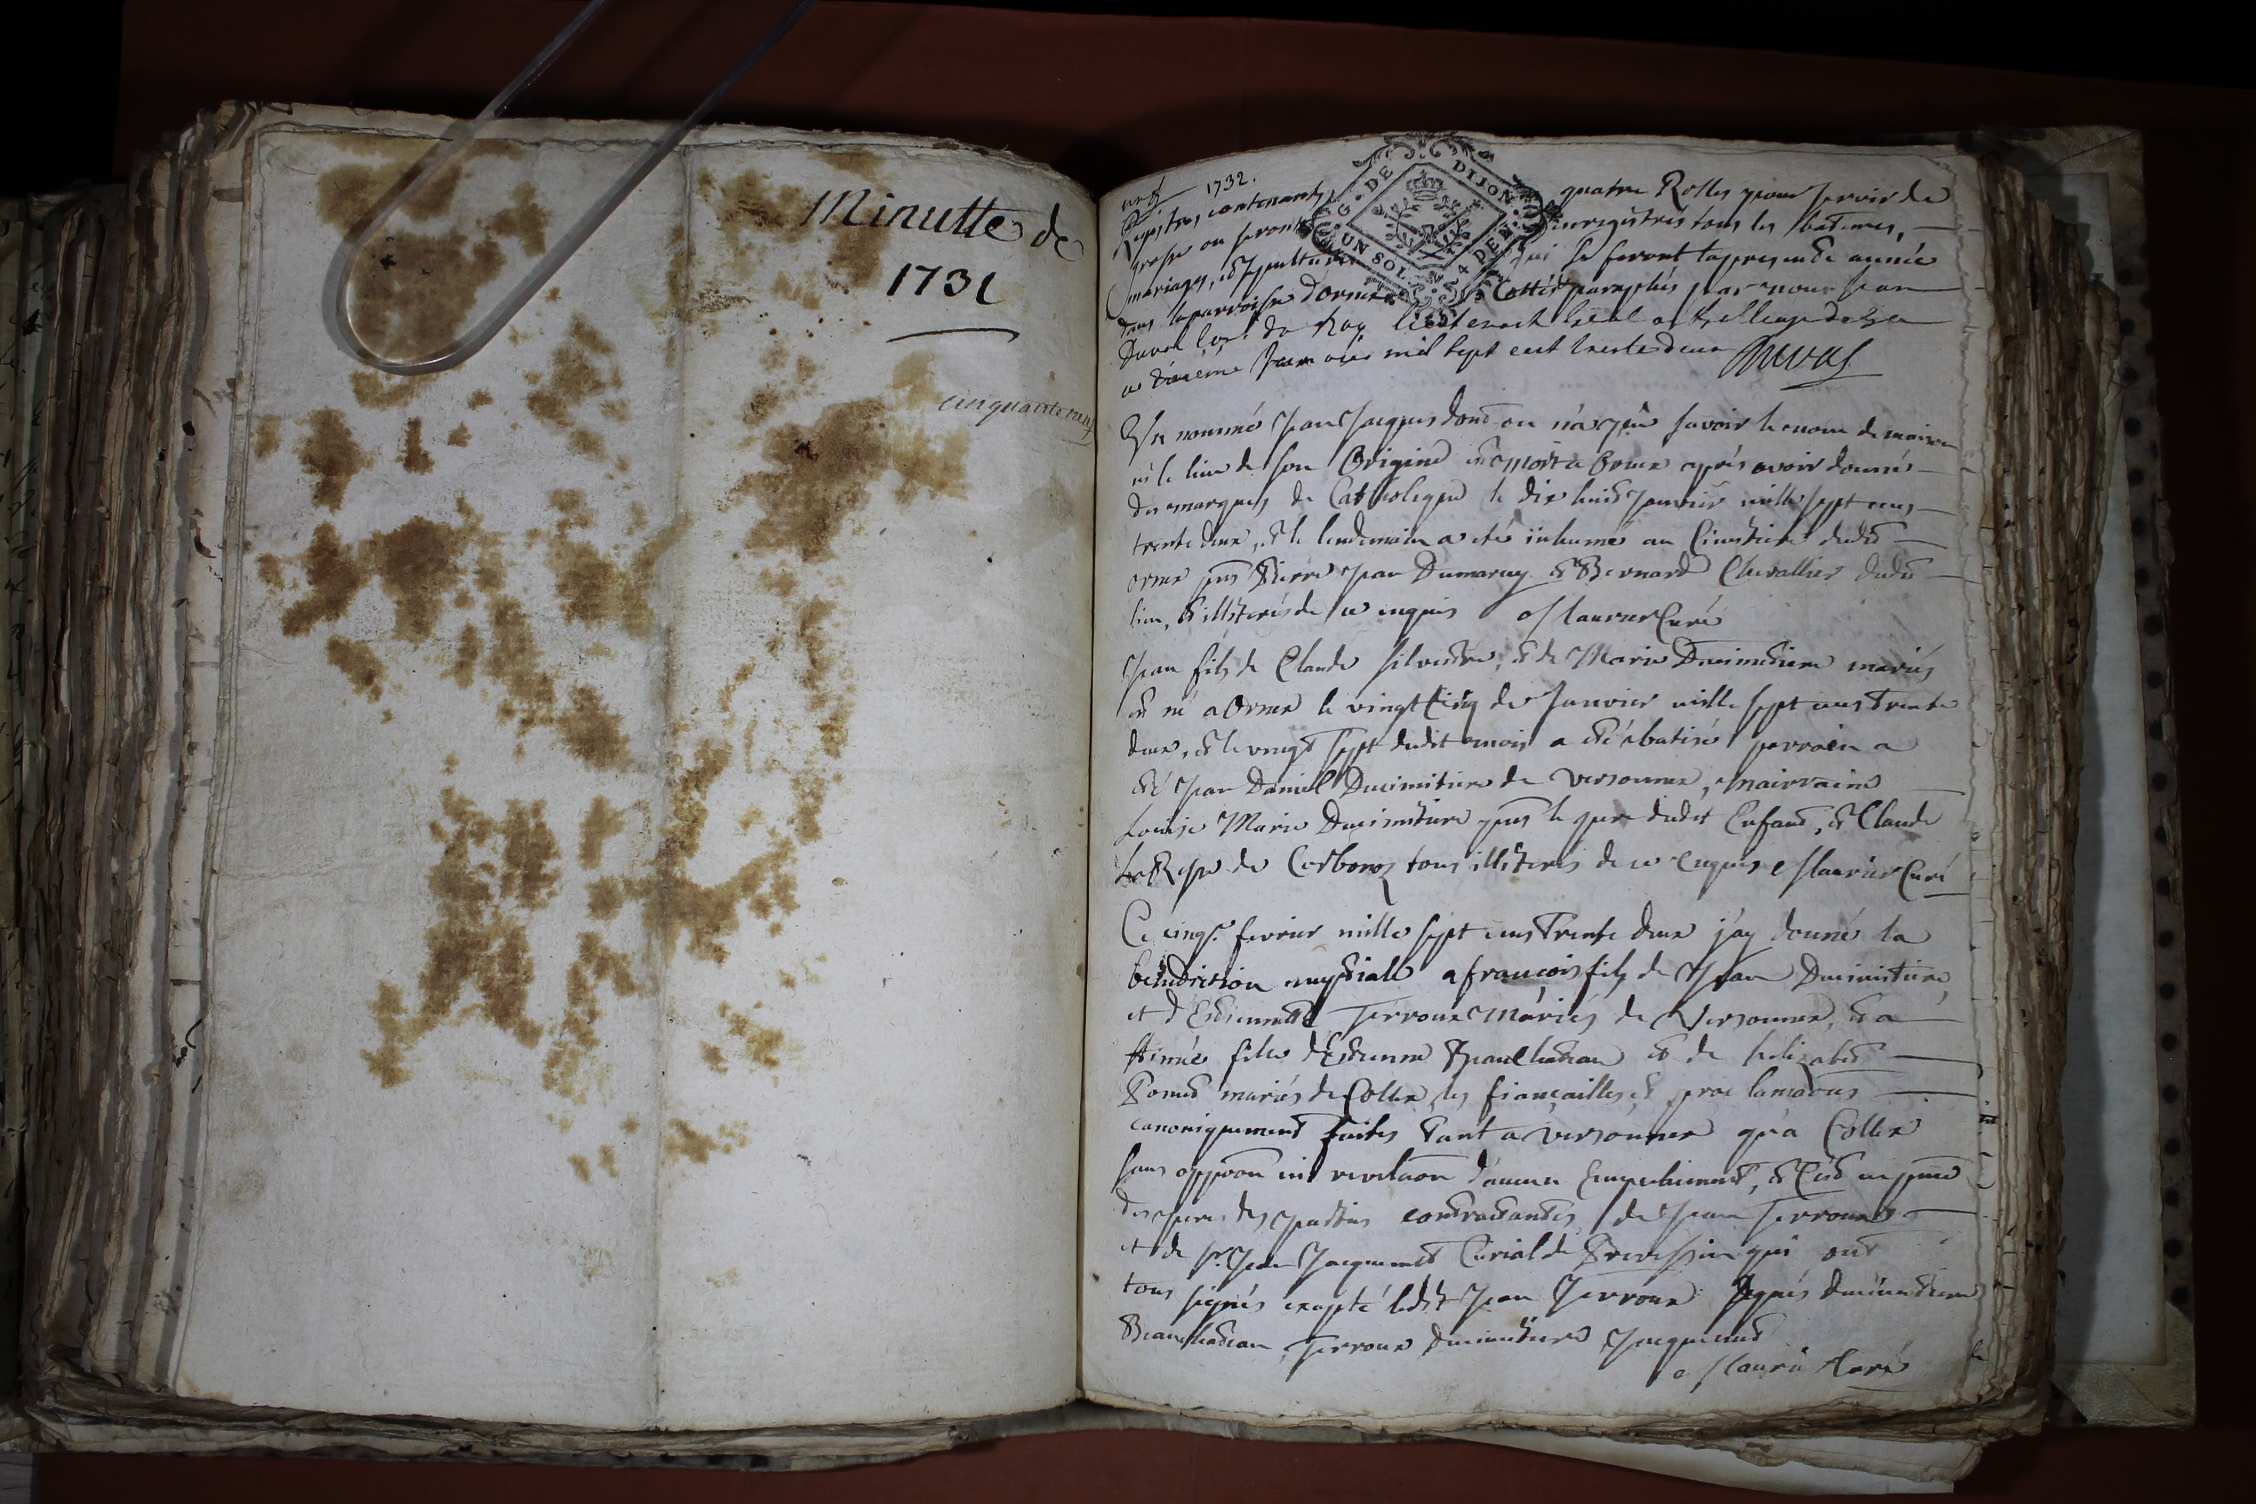 Minutte de
1731
cinquante neuf
1732.
Registre, contenant quatre Rolles pour servir de
grosse ou seront enregistrés tous les batemes,
mariages, et sepultures qui se feront la presente année
dans la parroisse d'ornex Cottés paraphés par nous Jean
Duval Coner du Roy lieutenant
ce janvier mil sept cent trente deux Duval
G. DE DIJON
UN SOL 4 DEN
Un nommé Jean Jacques dont on n'a pu savoir le nom de maison
ni le lieu de son Origine est mort a Ornex aprés avoir donnés
des marques de Catholique le dix huit janvier mille sept cens
trente deux, et le lendemain a eté inhumé au Cimetiere dudit
ornex pnts Pierre Jean Dumarey et Bernard Chevallier dudit
lieu, et illiterés de ce enquis Curé
Jean fils de Claude Silvestre, et de Marie Ducimetiere mariés
est né a Ornex le vingt Cinq de Janvier mille sept cens Trente
deux, et le vingt sept dudit mois a eté batisé parrain a
eté Jean Daniel Ducimitiere de Versonnex, mairraine
Louise Marie Ducimitiere pnts le pere dudit Enfant, et Claude
de tous illiterés de ce enquis Curé
Ce cinq.e fevrier mille sept cens Trente deux j'ay donné la
benediction nuptiale a françois fils de Jean Ducimitiere,
et d'Estiennette Perroux Mariés de Versonnex, et a
Aimée fille d'Estienne et de helizabet
mariés de Collex, les fiançailles, et proclamaõns
canoniquement faites tant a versonnex qu'a Collex
sans oppoõn ni revelaõn d'aucun Empechement, et C'est en pnce
des peres des parties contractantes, de Jean Perroux
et de Sr. Jean Jacquemet Curial de Prevessin qui ont
tous signés excepté ledit Jean Perroux Signés Ducimetiere
Perroux Ducimitiere Jacquemet
Curé